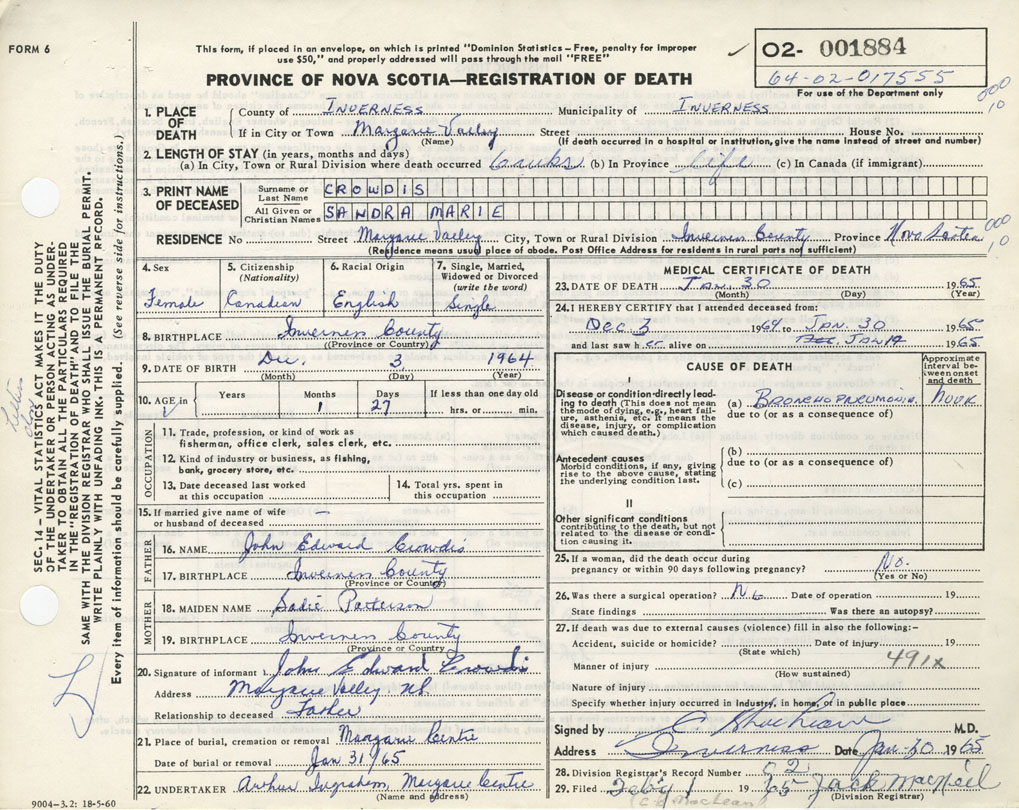 FORM 6
This form, if placed in an envelope, on which is printed "Dominion Statistics – Free, penalty for improper
use $50," and properly addressed will pass through the mail "FREE"
PROVINCE OF NOVA SCOTIA—REGISTRATION OF DEATH
02- 001884
64-02-017555
For use of the Department only
1. PLACE OF DEATH
County of INVERNESS Municipality of INVERNESS
If in City or Town Margaree Valley Street House No.
(Name) (If death occurred in a hospital or institution, give the name instead of street and number)
2. LENGTH OF STAY (in years, months and days)
(a) In City, Town or Rural Division where death occurred (b) In Province life (c) In Canada (if immigrant)
3. PRINT NAME OF DECEASED
Surname or Last Name CROWDIS
All Given or Christian Names SANDRA MARIE
RESIDENCE No Street Margaree Valley City, Town or Rural Division Inverness County Province Nova Scotia
(Residence means usual place of abode. Post Office Address for residents in rural parts not sufficient)
000
10
4. Sex Female
5. Citizenship (Nationality) Canadian
6. Racial Origin English
7. Single, Married, Widowed or Divorced (write the word) Single
8. BIRTHPLACE Inverness County
(Province or Country)
9. DATE OF BIRTH Dec. 3 1964
(Month) (Day) (Year)
10. AGE in Years Months 1 Days 27 If less than one day old hrs. or min.
OCCUPATION
11. Trade, profession, or kind of work as
fisherman, office clerk, sales clerk, etc.
12. Kind of industry or business, as fishing,
bank, grocery store, etc.
13. Date deceased last worked
at this occupation
14. Total yrs. spent in
this occupation
15. If married give name of wife
or husband of deceased —
FATHER
16. NAME John Edward Crowdis
17. BIRTHPLACE Inverness County
(Province or Country)
MOTHER
18. MAIDEN NAME Sadie Patterson
19. BIRTHPLACE Inverness County
(Province or Country)
20. Signature of informant John Edward Crowdis
Address Margaree Valley, NS.
Relationship to deceased Father
21. Place of burial, cremation or removal Margaree Centre
Date of burial or removal Jan 31/65
22. UNDERTAKER Arthur Ingraham, Margaree Centre
(Name and address)
9004–3.2: 18-5-60
MEDICAL CERTIFICATE OF DEATH
23. DATE OF DEATH JAN. 30 1965
(Month) (Day) (Year)
24. I HEREBY CERTIFY that I attended deceased from:
Dec 3 1964 to JAN. 30 1965
and last saw her alive on JAN 19 1965
CAUSE OF DEATH
Approximate interval between onset and death
I
Disease or condition directly leading to death (This does not mean the mode of dying, e.g., heart failure, asthenia, etc. It means the disease, injury, or complication which caused death.)
(a) BRONCHOPNEUMONIA. HOUR
due to (or as a consequence of)
Antecedent causes
Morbid conditions, if any, giving rise to the above cause, stating the underlying condition last.
(b)
due to (or as a consequence of)
(c)
II
Other significant conditions
contributing to the death, but not related to the disease or condition causing it.
25. If a woman, did the death occur during
pregnancy or within 90 days following pregnancy? No.
(Yes or No)
26. Was there a surgical operation? No Date of operation 19
State findings Was there an autopsy?
27. If death was due to external causes (violence) fill in also the following:-
Accident, suicide or homicide? Date of injury 19
(State which)
491x
Manner of injury
(How sustained)
Nature of injury
Specify whether injury occurred in industry, in home, or in public place
Signed by M.D.
Address Inverness Date Jan 30 1965
28. Division Registrar's Record Number 92
29. Filed Feb 1 1965 Jack MacNeil
(C. E. MacLean) (Division Registrar)
SEC. 14 – VITAL STATISTICS ACT MAKES IT THE DUTY
OF THE UNDERTAKER OR PERSON ACTING AS UNDER-
TAKER TO OBTAIN ALL THE PARTICULARS REQUIRED
IN THE "REGISTRATION OF DEATH" AND TO FILE THE
SAME WITH THE DIVISION REGISTRAR WHO SHALL ISSUE THE BURIAL PERMIT.
WRITE PLAINLY WITH UNFADING INK. THIS IS A PERMANENT RECORD.
Every item of information should be carefully supplied. (See reverse side for instructions.)